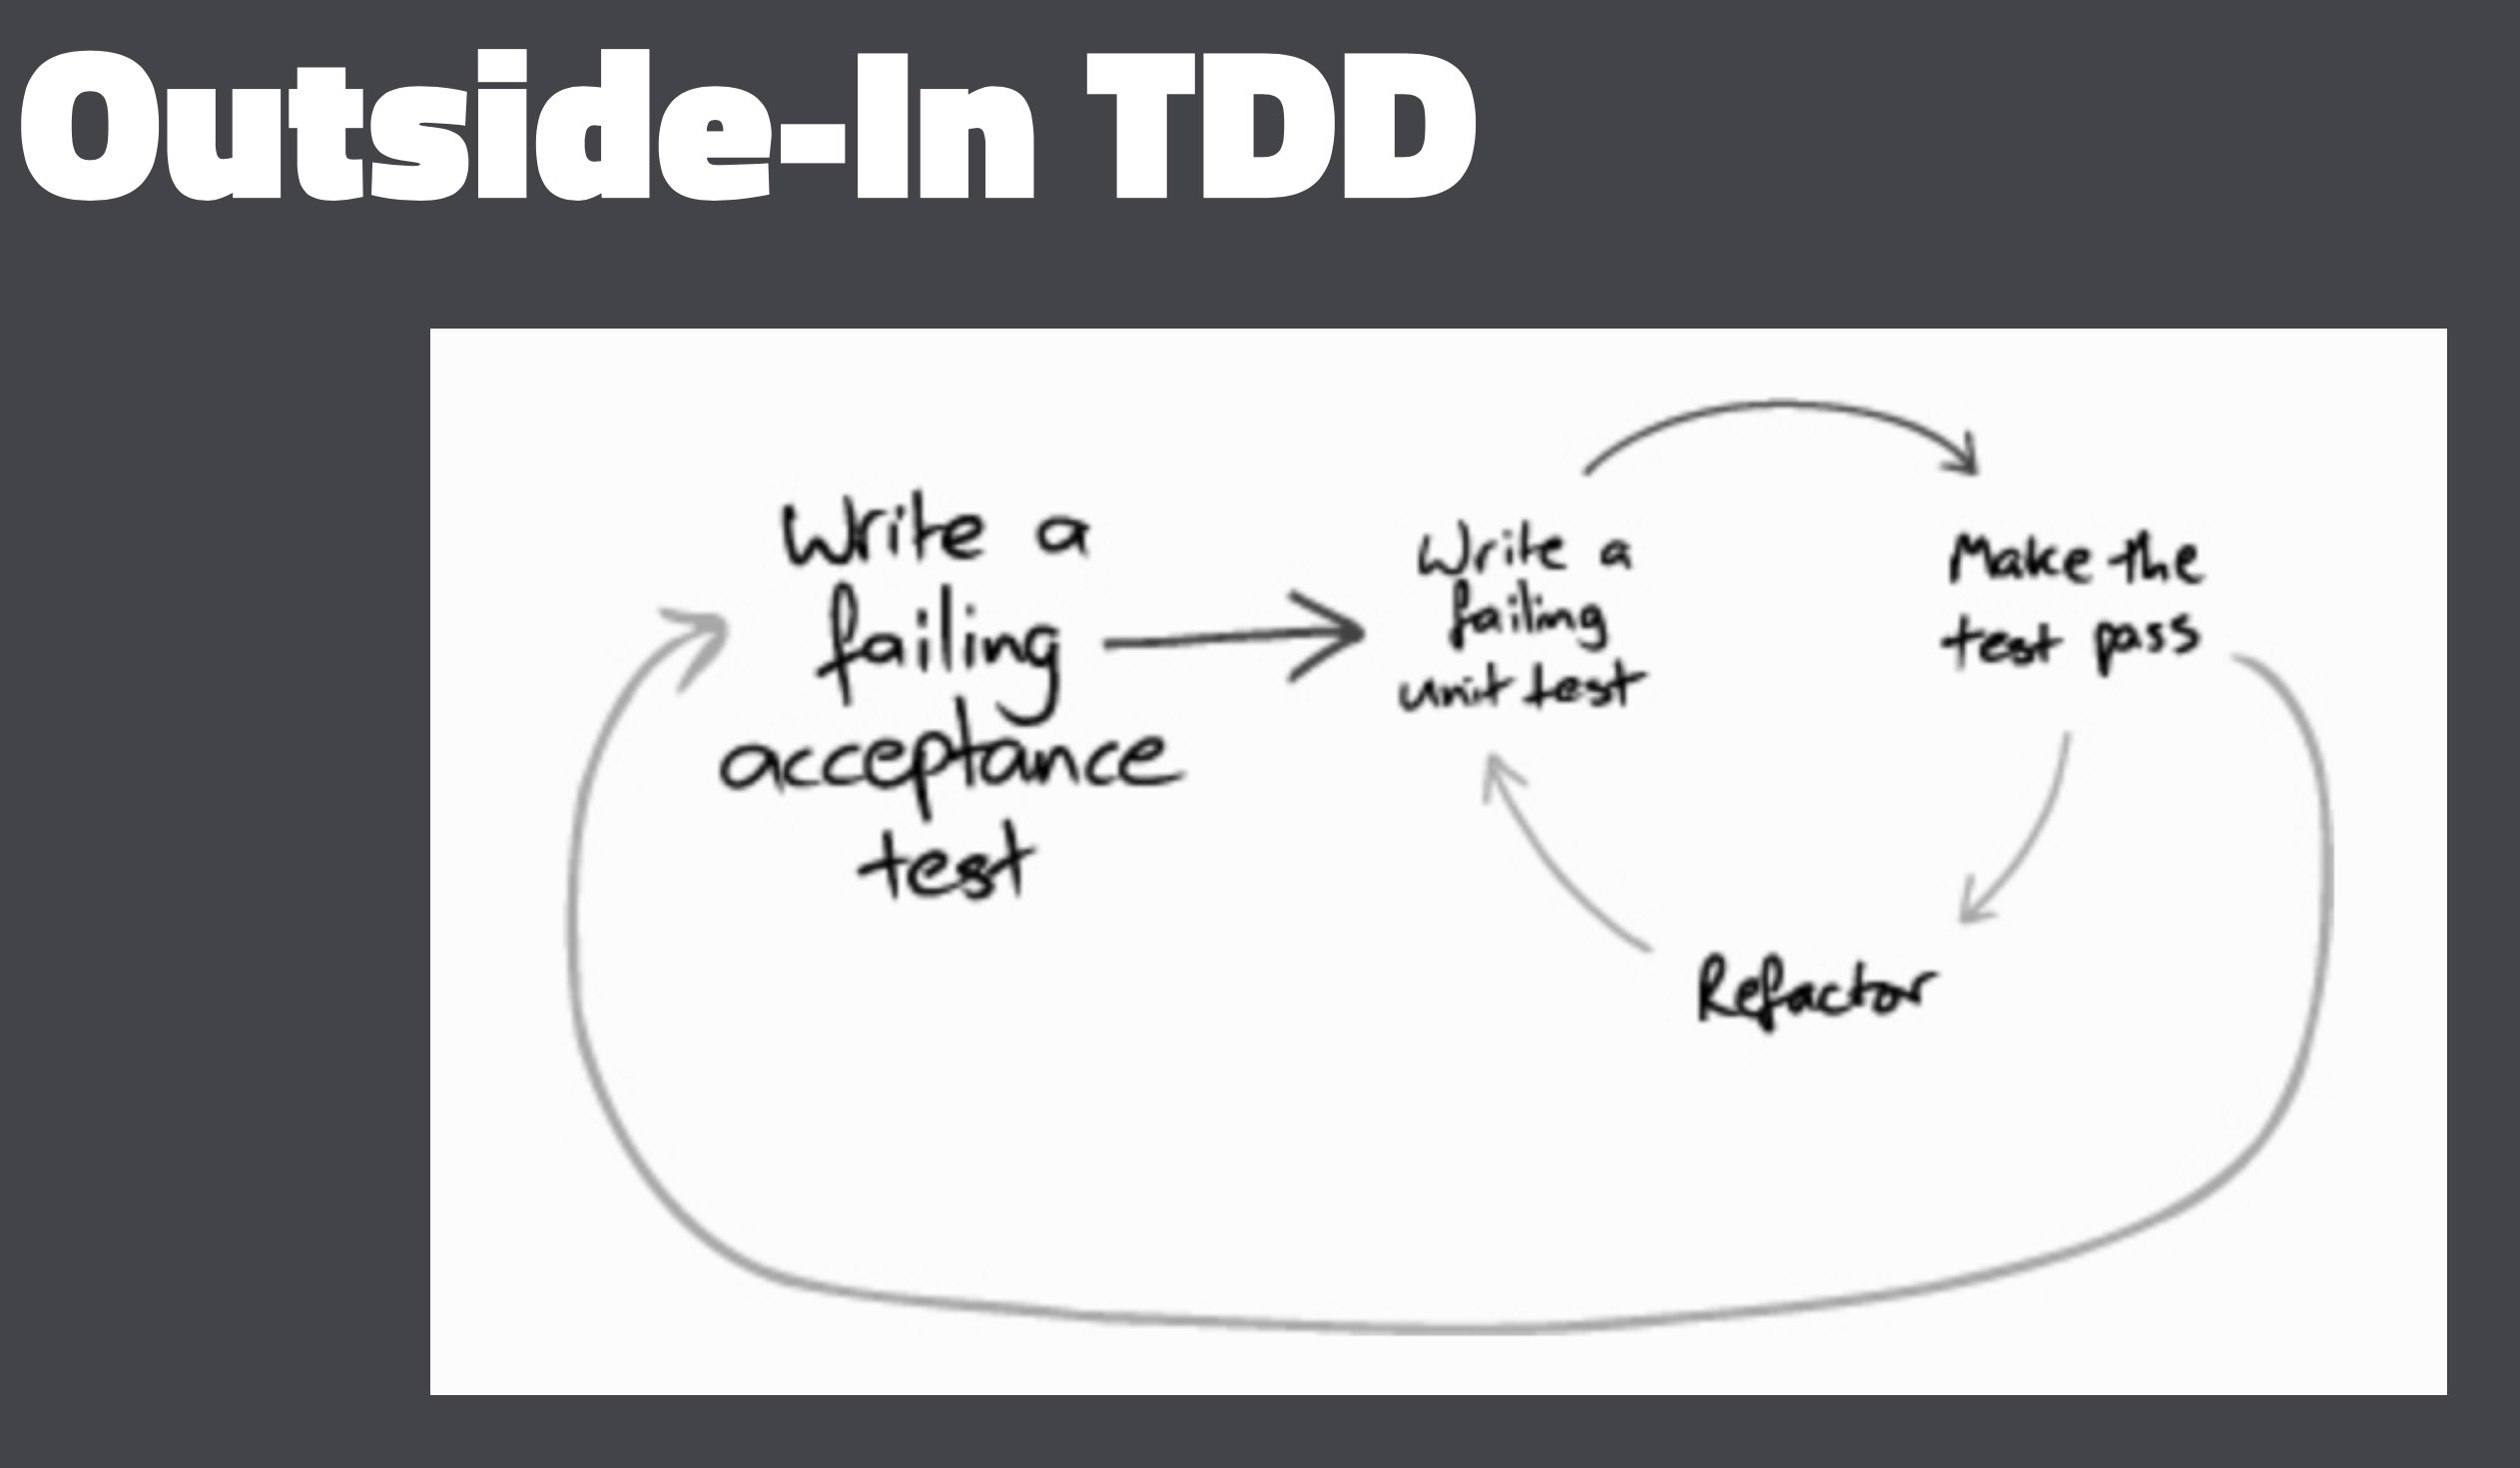 Outside-In TDD
Write a
failing
acceptance
test
Write a
failing
unit test
Make the
test pass
Refactor